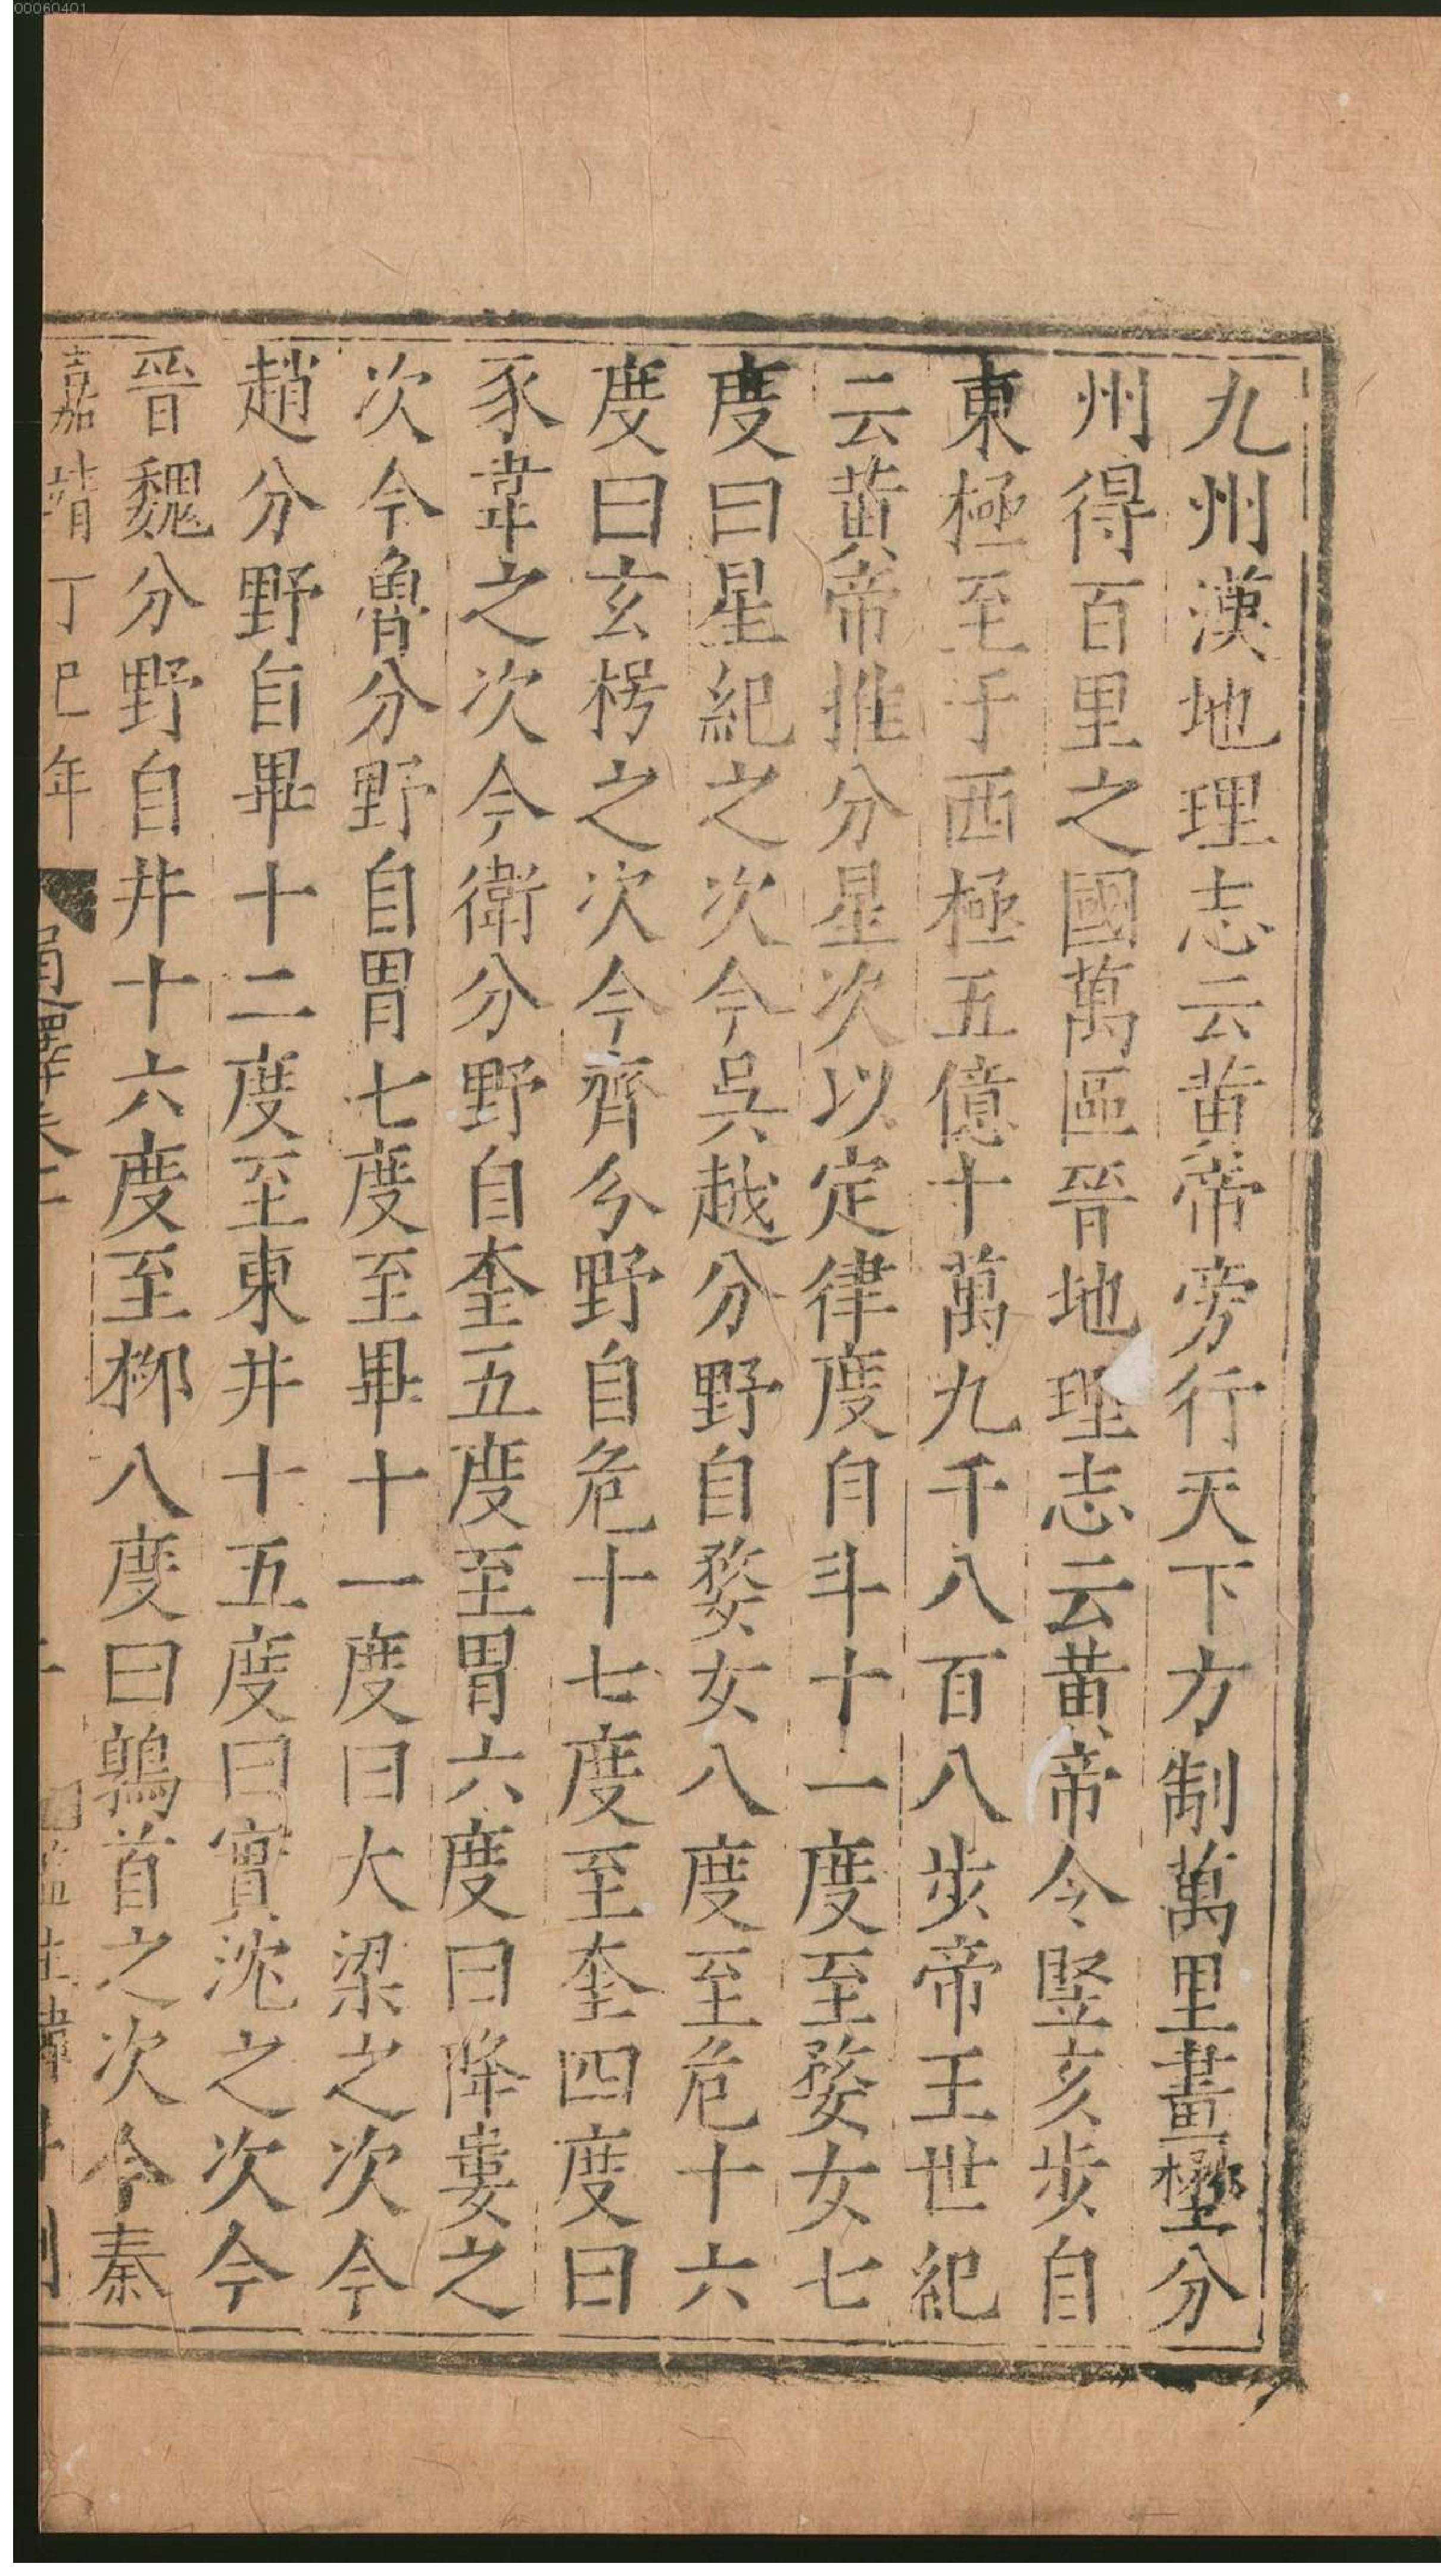 九州漢地理志云黄帝旁行天下方制萬里畫壄分
州得百里之國萬區晉地理志云黄帝令竪亥步自
東極至于西極五億十萬九千八百八步帝王世紀
云黄帝推分星次以定律度自斗十一度至婺女七
度曰星紀之次今吳越分野自婺女八度至危十六
度曰玄枵之次今齊分野自危十七度至奎四度曰
豕韋之次今衛分野自奎五度至胃六度曰降婁之
次今魯分野自胃七度至畢十一度曰大梁之次今
趙分野自畢十二度至東井十五度曰實沈之次今
晉魏分野自井十六度至栁八度曰鶉首之次今秦
嘉靖丁巳年
00060401